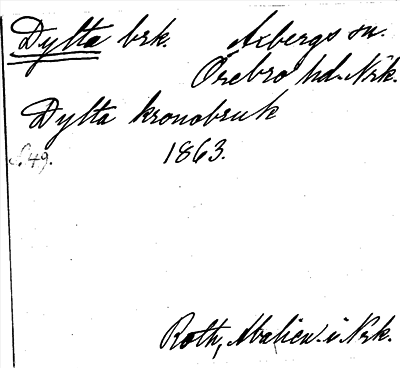 Dylta brk. Axbergs sn.
Örebro hd. Nrk.
Dylta kronobruk
s. 49. 1863.
Roth, i Nrk.